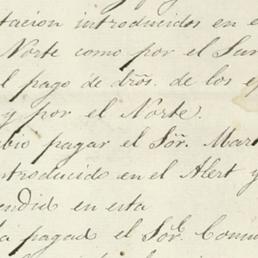 tacion introducidos en e
Norte como por el Sur
l pago de dros. de los ef
y por el Norte.
bio pagar el Sor. Mar
ntroducido en el Alert y
endid en esta
a pagad el Sor. Comi